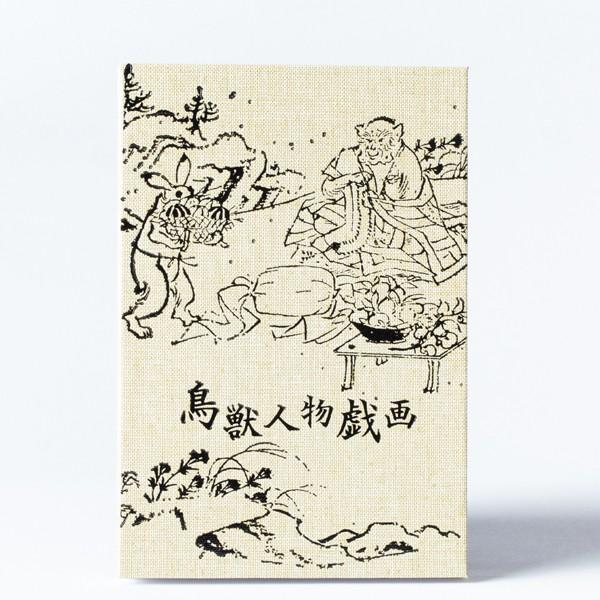 鳥獣人物戯画